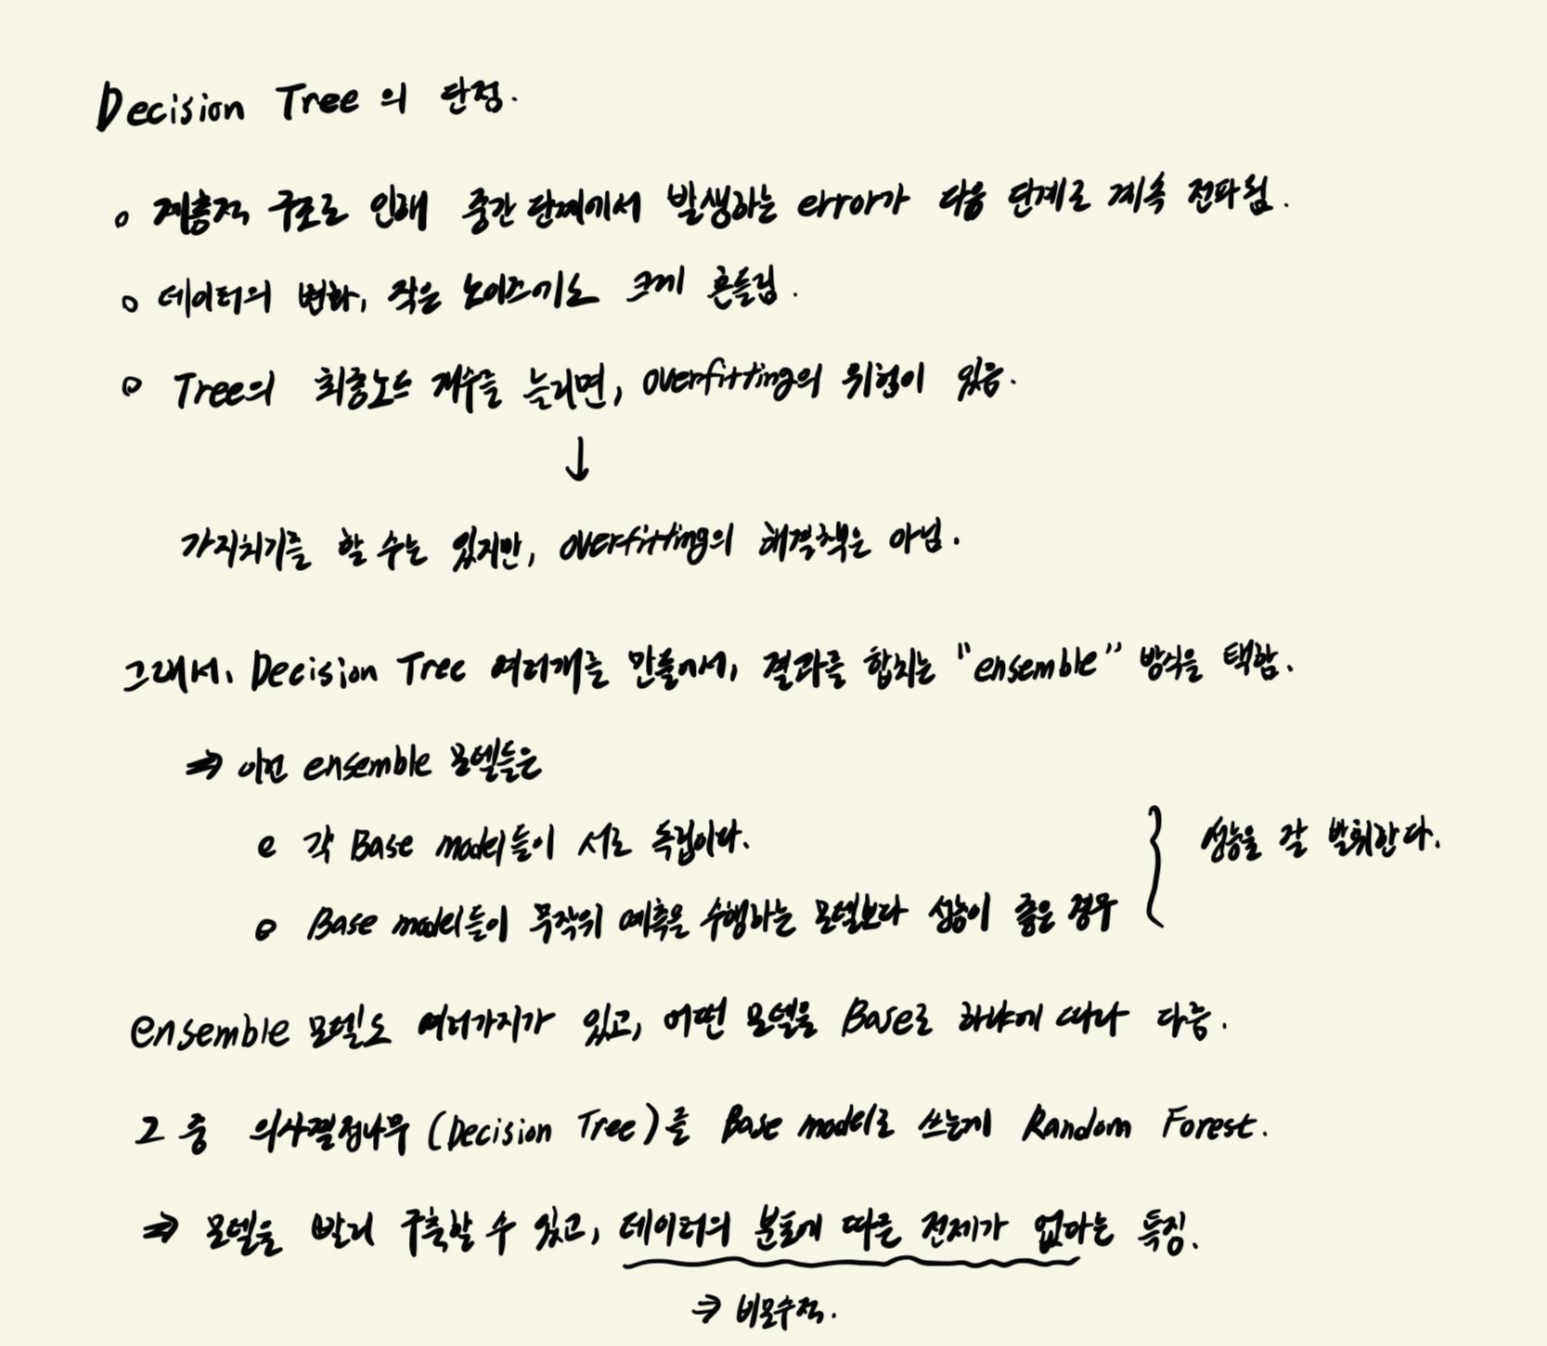 Decision Tree의 단점.
계층적 구조로 인해 중간 단계에서 발생하는 error가 다음 단계로 계속 전파됨.
데이터의 변화, 작은 노이즈에도 크게 흔들림.
Tree의 최종노드 개수를 늘리면, overfitting의 위험이 있음.
↓
가지치기를 할 수는 있지만, overfitting의 해결책은 아님.
그래서, Decision Tree 여러개를 만들어서, 결과를 합치는 "ensemble" 방식을 택함.
⇒ 이런 ensemble 모델들은
각 Base model들이 서로 독립이다.
Base model들이 무작위 예측을 수행하는 모델보다 성능이 좋은 경우 } 성능을 잘 발휘한다.
ensemble 모델도 여러가지가 있고, 어떤 모델을 Base로 하냐에 따라 다름.
그 중 의사결정나무 (Decision Tree)를 Base model로 쓰는게 Random Forest.
⇒ 모델을 빨리 구축할 수 있고, 데이터의 분포에 따른 전제가 없다는 특징.
⇒ 비모수적.